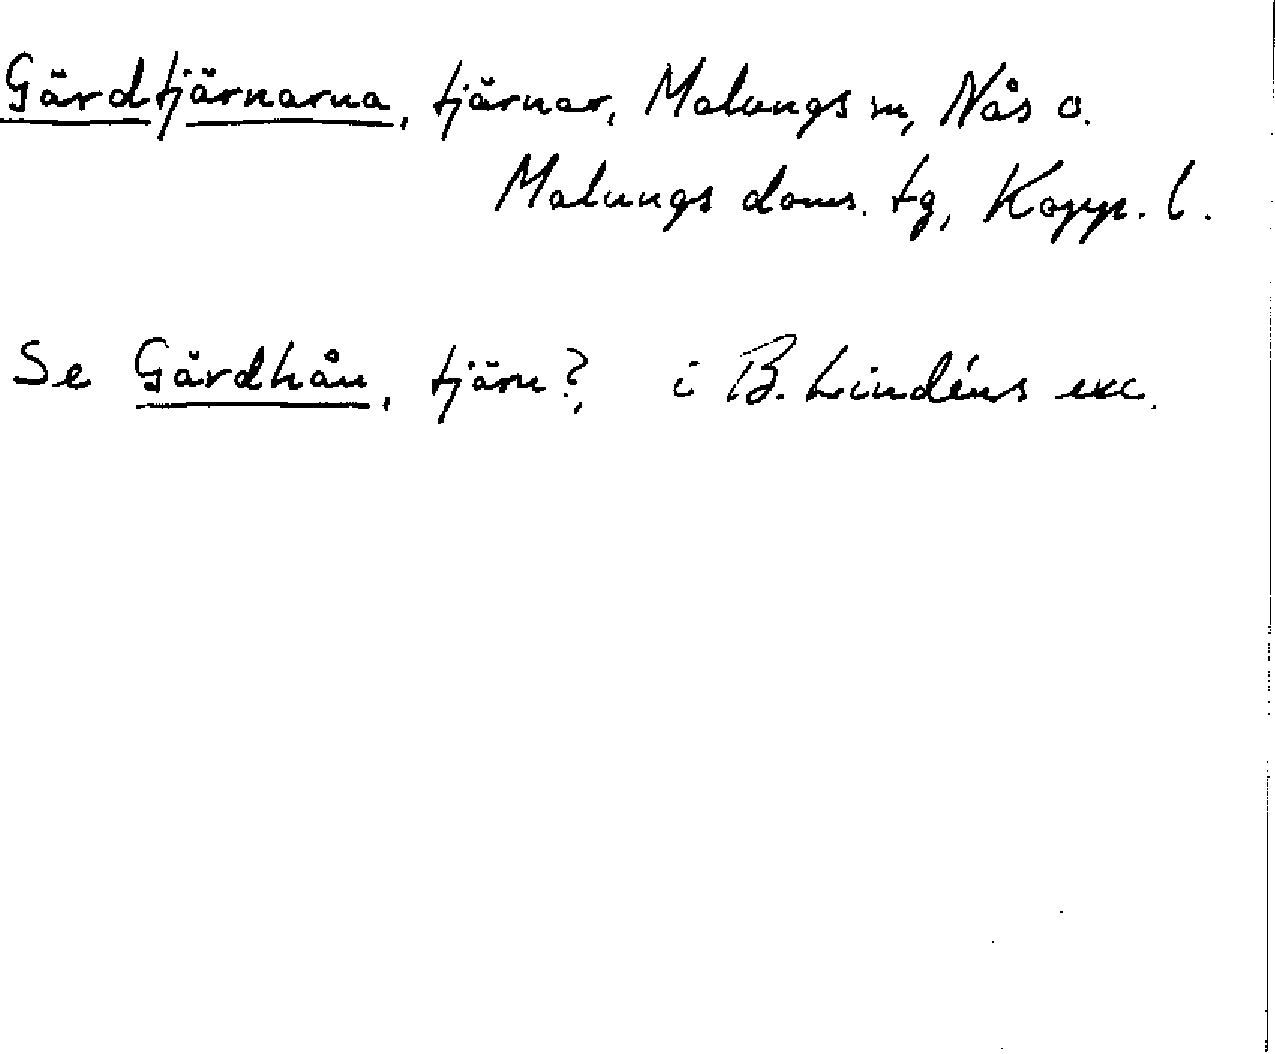 Gärdtjärnarna, tjärnar, Malungs sn, Nås o.
Malungs doms. tg, Kopp. l.
Se Gärdhån, tjärn?, i B. Lindéns exc.